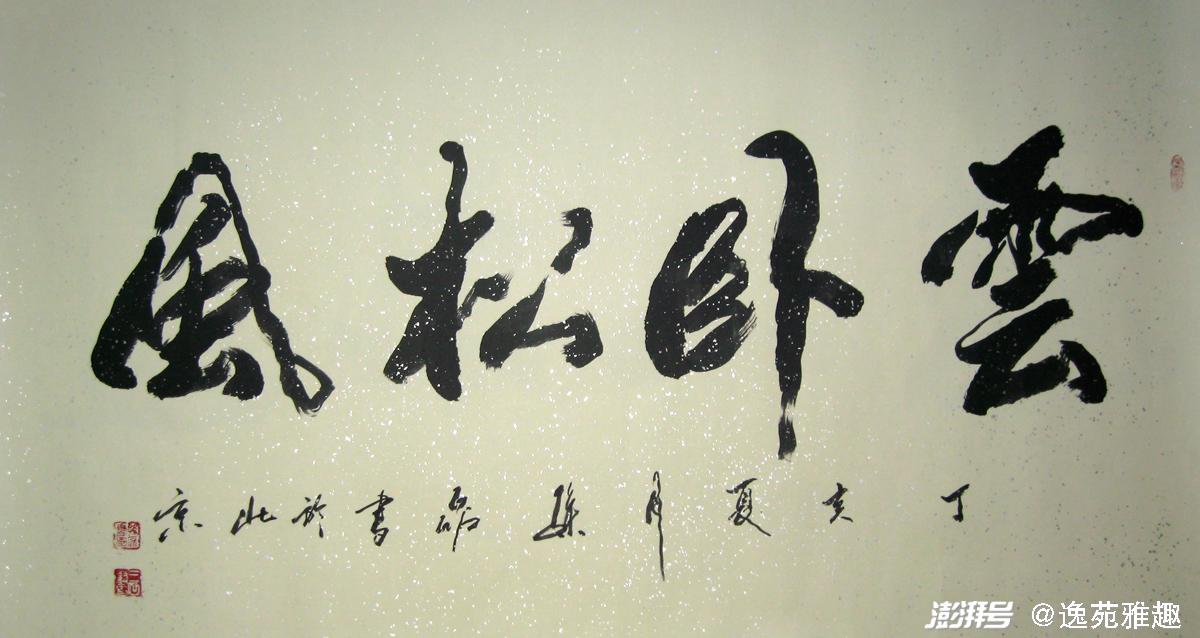 雲卧松風
丁亥夏月孫磊書於北京
澎湃号 @逸苑雅趣